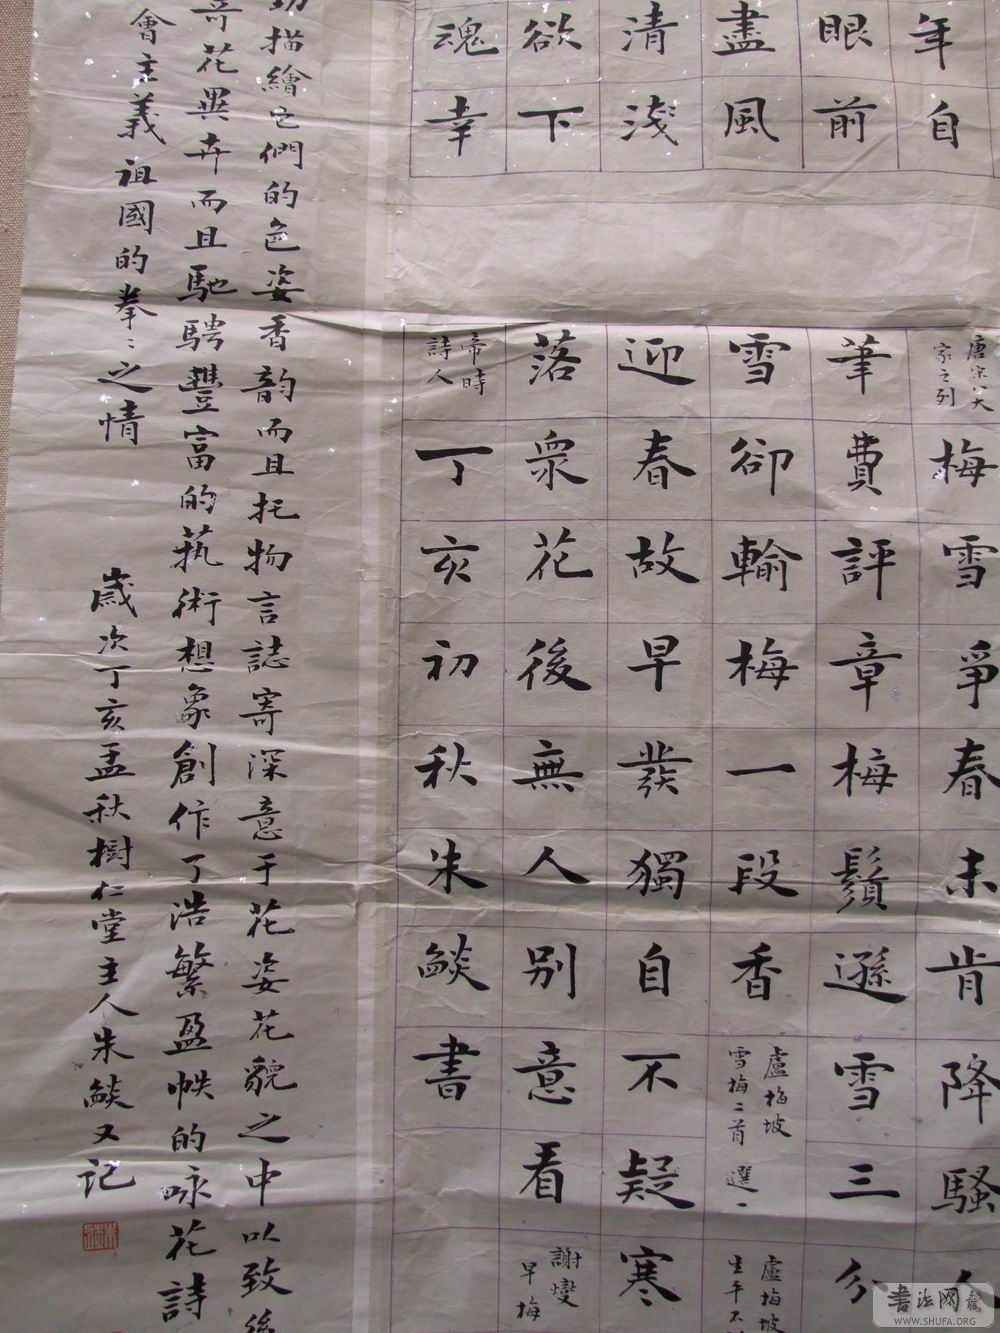 年自
眼前
盡風
清淺
欲下
魂幸
唐宋八大
家之列
梅雪爭春未肯降騷人
筆費評章梅鬚遜雪三分
雪卻輸梅一段香
盧梅坡
雪梅二首 選一
盧梅坡
生平不
迎春故早發獨自不疑寒
落衆花後無人別意看
謝燮
早梅
帝時
詩人
丁亥初秋朱燄書
描繪它們的色姿香韵而且托物言誌寄深意于花姿花貌之中以致後
奇花異卉而且馳騁豐富的蓺術想象創作了浩繁盈帙的咏花詩
會主義祖國的拳〻之情
歲次丁亥孟秋樹仁堂主人朱燄又记
书法网
WWW.SHUFA.ORG